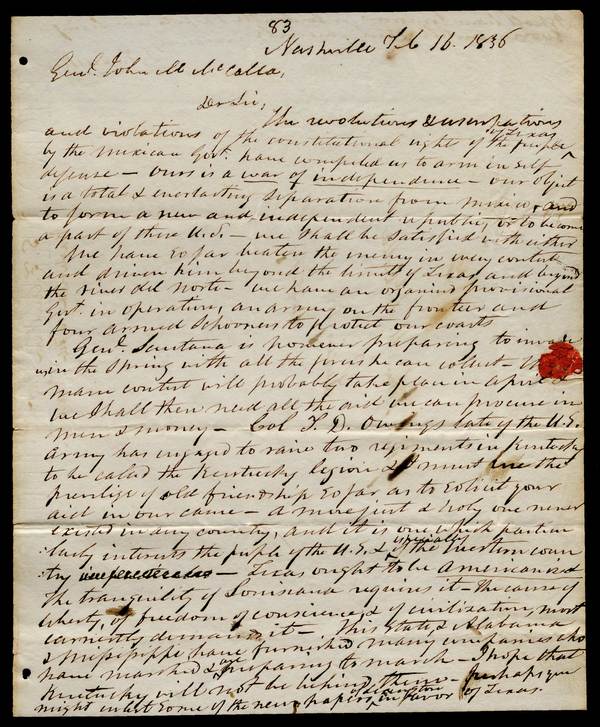 83
Nashville Feb 16. 1836
Genl. John M McCalla,
Dr Sir,
The revolutions & usurpations
and violations of the constitutional rights of the people of Texas
by the Mexican Govt. have compelled us to arm in self
defense — ours is a war of independence — our object
is a total & everlasting separation from Mexico, and
to form a new and independent republic, or to become
a part of these U.S. — we shall be satisfied with either
We have so far beaten the enemy in every contest
and driven him beyond the limits of Texas and beyond
the river del Norte — we have an organised provisional
Govt. in operation, an army on the frontier and
four armed Schooners to protect our coasts
Genl. Santana is however preparing to invade
us in the Spring with all the force he can collect — The
main contest will probably take place in April &
we shall then need all the aid we can procure in
men & money — Col T. D. Owings late of the U.S.
army has engaged to raise two regiments in Kentucky
to be called the Kentucky legion & I must use the
privilege of old friendship so far as to solicit your
aid in our cause — a more just & holy one never
existed in any country, and it is one which particu
larly interests the people of the U.S. & especially of the western coun
try — Texas ought to be americanised
The tranquility of Louisiana requires it — the cause of
liberty, of freedom of conscience & of civilization, most
earnestly demands it — This State & Alabama
& Mississippi have furnished many companies who
have marched & are preparing to march — I hope that
Kentucky will not be behind them — perhaps you
might enlist some of the newspapers of Lexington in favor of Texas.